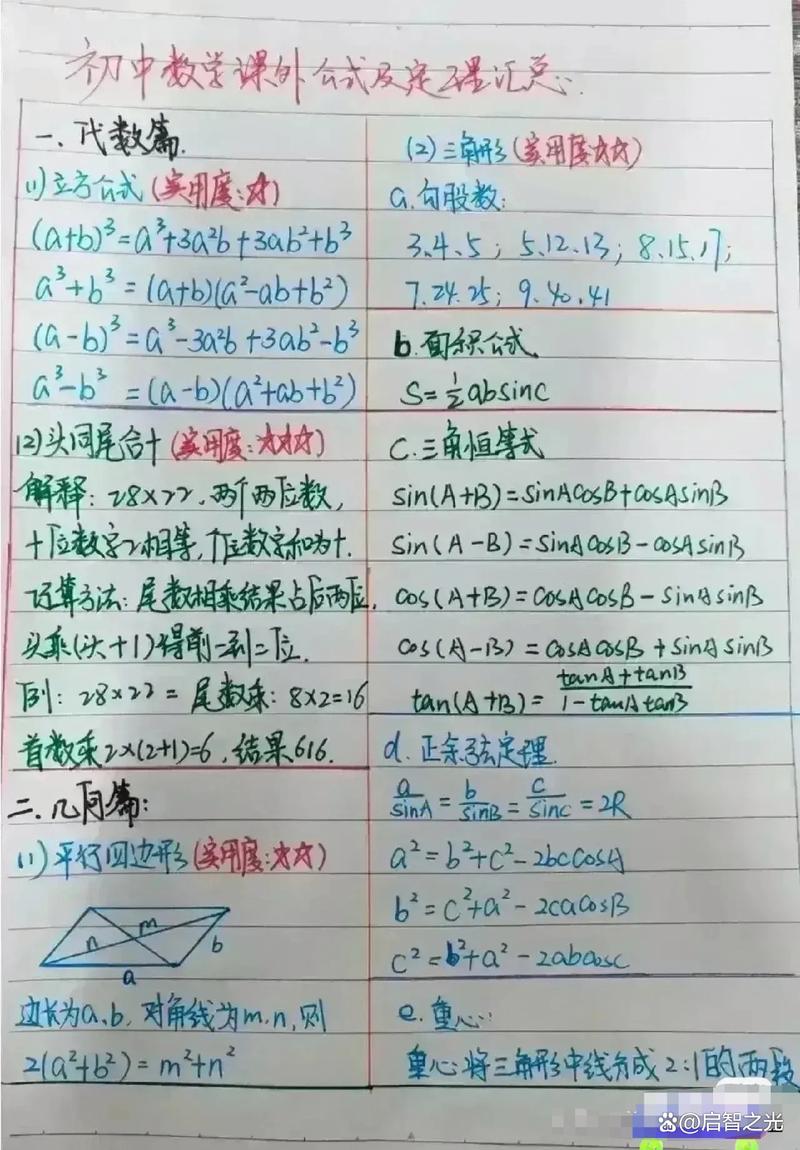 初中数学课外公式及定理汇总:
一、代数篇.
(1)立方公式(实用度:☆)
(a+b)³=a³+3a²b+3ab²+b³
a³+b³=(a+b)(a²-ab+b²)
(a-b)³=a³-3a²b+3ab²-b³
a³-b³=(a-b)(a²+ab+b²)
(2)头同尾合十(实用度:☆☆☆)
解释:28×22,两个两位数,
十位数字2相等,个位数字和为十.
运算方法:尾数相乘结果占后两位,
头乘(头+1)得前一到二位.
例:28×22=尾数乘:8×2=16
首数乘2×(2+1)=6,结果616.
二、几何篇:
(1)平行四边形(实用度:☆☆)
m
n
b
a
边长为a、b,对角线为m、n,则
2(a²+b²)=m²+n²
(2)三角形(实用度☆☆)
a.勾股数:
3、4、5;5、12、13;8、15、17;
7、24、25;9、40、41
b.面积公式
S=½absinC
c.三角恒等式
sin(A+B)=sinAcosB+cosAsinB
sin(A-B)=sinAcosB-cosAsinB
cos(A+B)=cosAcosB-sinAsinB
cos(A-B)=cosAcosB+sinAsinB
tan(A+B)=(tanA+tanB)/(1-tanAtanB)
d.正余弦定理
a/sinA=b/sinB=c/sinC=2R
a²=b²+c²-2bccosA
b²=c²+a²-2cacosB
c²=b²+a²-2abcosc
e.重心:
重心将三角形中线分成2:1的两段
@启智之光